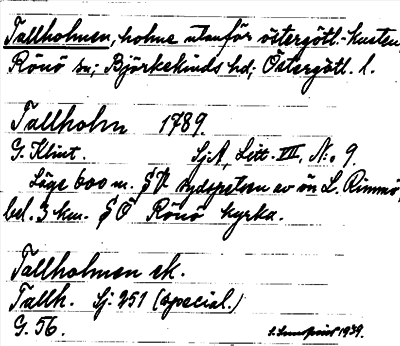 Tallholmen, holme utanför östergötl.-kusten,
Rönö sn; Björkekinds hd; Östergötl. l.
Tallholm 1789.
G. Klint. SjA, Litt. VII, N:o 9.
Läge 600 m. SV sydspetsen av ön L. Rimmö,
bel. 3 km. SÖ Rönö kyrka.
Tallholmen ek.
Tallh. Sj. 251 (special.)
G. 56. 1939.